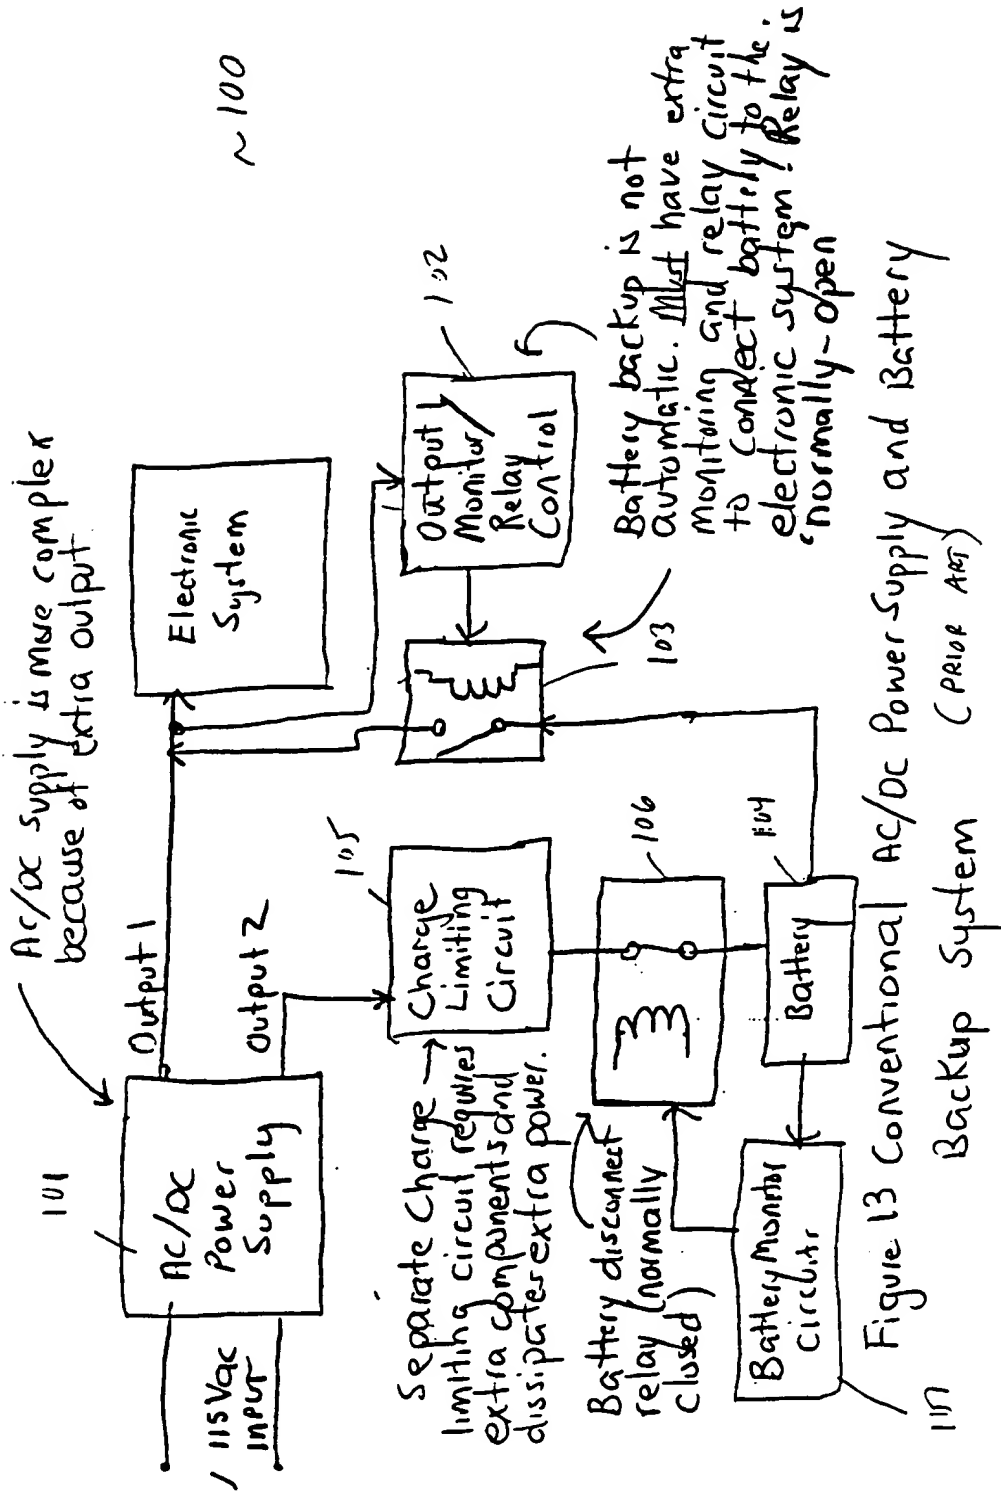 AC/DC supply is more complex
because of extra output
~100
101
AC/DC
Power
Supply
115Vac
INPUT
Output 1
Output 2
Electronic
System
102
Output 1
Monitor/
Relay
Control
103
Battery backup is not
automatic. Must have extra
monitoring and relay circuit
to connect battery to the
electronic system. Relay is
"normally-open
105
Charge
Limiting
Circuit
Separate Charge
limiting circuit requires
extra components and
dissipates extra power.
106
Battery disconnect
relay (normally
closed)
104
Battery
Battery Monitor
Circuit
107
Figure 13 Conventional AC/DC Power Supply and Battery
Backup System (PRIOR ART)